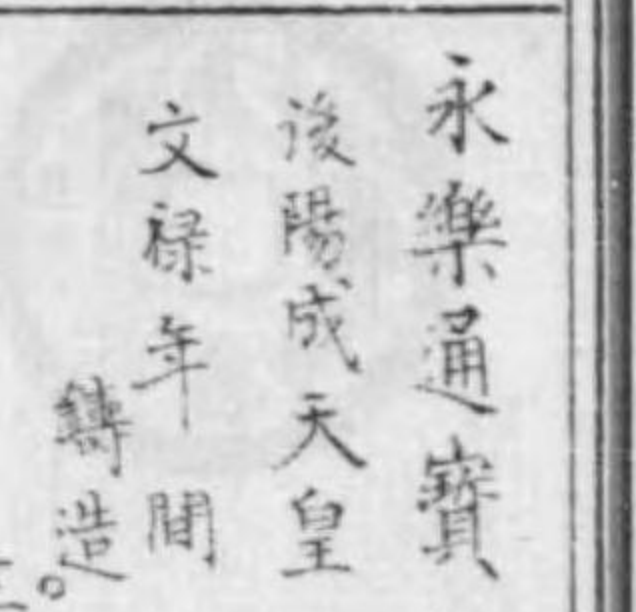 永樂通寳
後陽成天皇
文禄年間
鑄造。